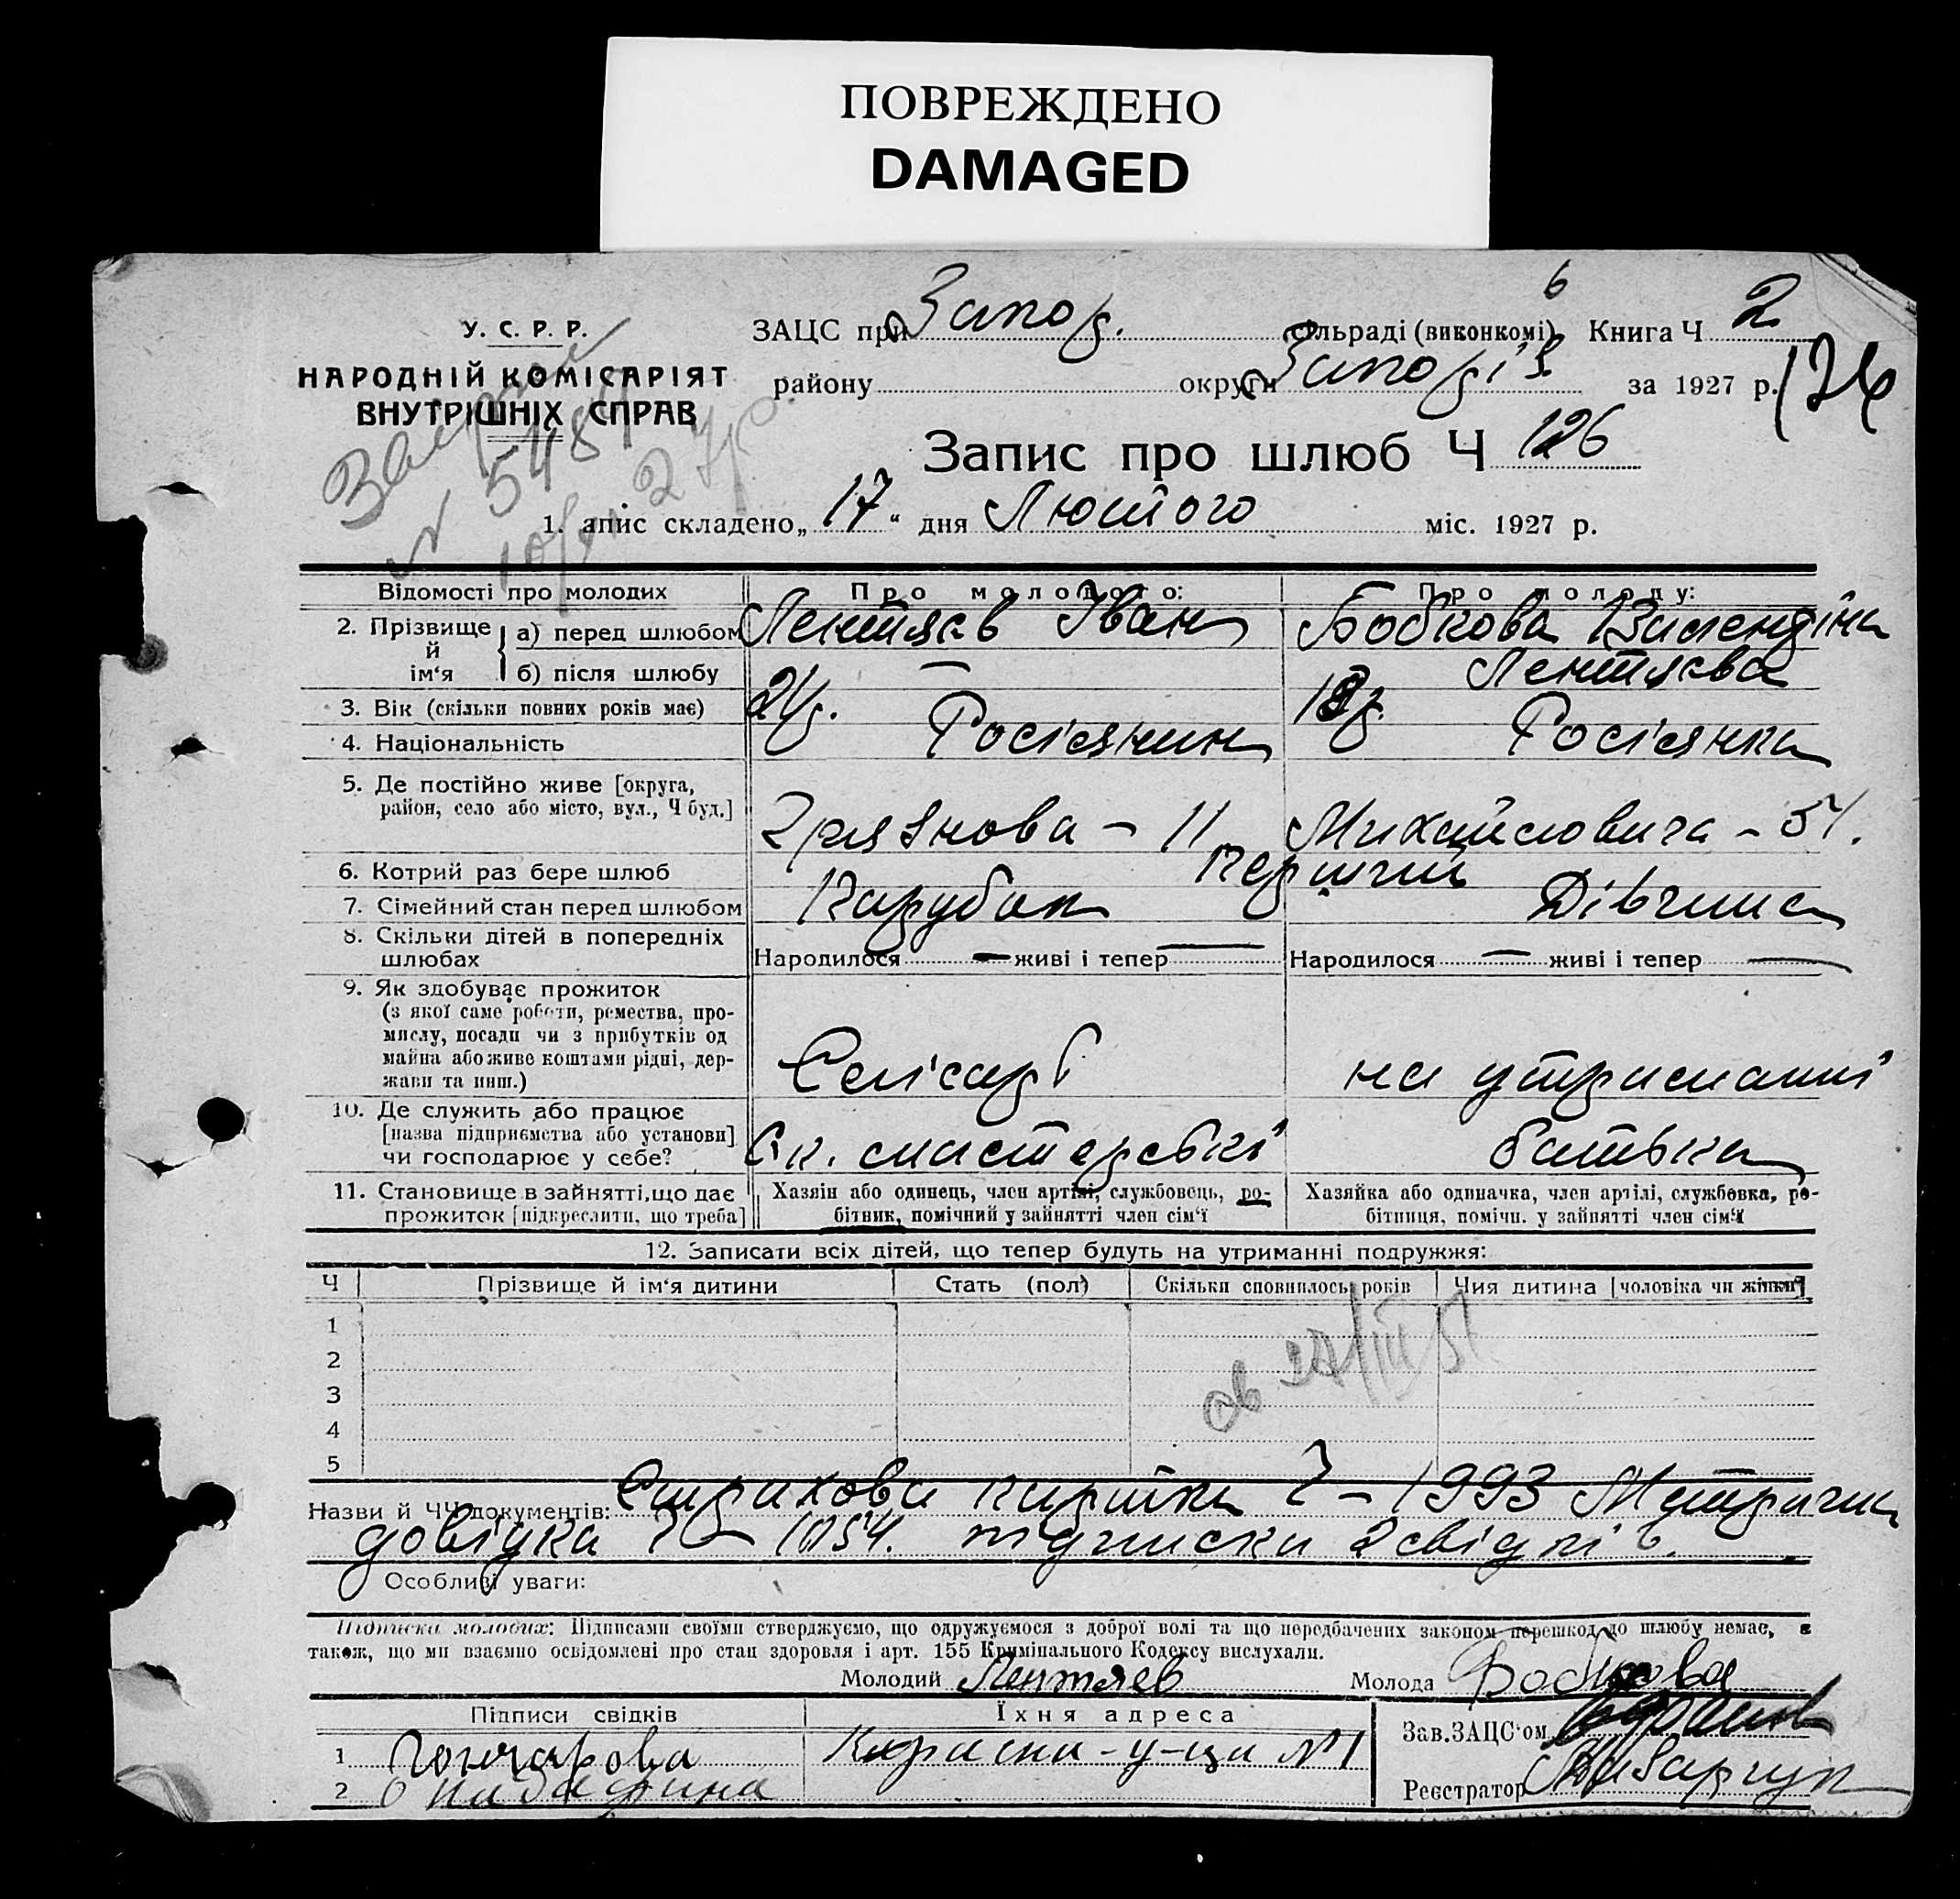 ПОВРЕЖДЕНО
DAMAGED
У. С. Р. Р.
НАРОДНІЙ КОМІСАРІЯТ
ВНУТРІШНІХ СПРАВ
ЗАЦС при Запор. сільраді (виконкомі) Книга Ч 2
району округи Запоріз. за 1927 р.
126
Запис про шлюб Ч 126
№ 5487
1. апис складено „17" дня Лютого міс. 1927 р.
Відомості про молодих Про молодого: Про молоду:
2. Прізвище й ім'я а) перед шлюбом Лентяєв Іван Бобкова Валендіна
б) після шлюбу — Лентяєва
3. Вік (скільки повних років має) 24р. 18р.
4. Національність Росіянин Росіянка
5. Де постійно живе [округа, район, село або місто, вул., Ч буд.] Грязнова - 11 Михайловича - 54.
6. Котрий раз бере шлюб перший
7. Сімейний стан перед шлюбом Парубок Дівчина
8. Скільки дітей в попередніх шлюбах Народилося — живі і тепер — Народилося — живі і тепер —
9. Як здобуває прожиток
(з якої саме роботи, ремества, промислу, посади чи з прибутків од майна або живе коштами рідні, держави та инш.) Слісарь на утриманні
10. Де служить або працює
[назва підприємства або установи] чи господарює у себе? Єк. мастерські батька
11. Становище в зайнятті, що дає прожиток [підкреслити, що треба] Хазяїн або одинець, член артілі, службовець, робітник, помічний у зайнятті член сім'ї Хазяйка або одиначка, член артілі, службовка, робітниця, помічн. у зайнятті член сім'ї
12. Записати всіх дітей, що тепер будуть на утриманні подружжя:
Ч Прізвище й ім'я дитини Стать (пол) Скільки сповнилось років Чия дитина [чоловіка чи жінки]
1
2
3
4
5
Назви й ЧЧ документів: Страхова картка Ч - 1993 Метрична
довідка Ч - 1054. підписки 2 свідків.
Особливі уваги:
Підписки молодих: Підписами своїми стверджуємо, що одружуємося з доброї волі та що передбачених законом перешкод до шлюбу немає, а
також, що ми взаємно освідомлені про стан здоровля і арт. 155 Кримінального Кодексу вислухали.
Молодий Лентяев Молода Бобкова
Підписи свідків Їхня адреса Зав.ЗАЦС'ом
1 Гончарова Карасна-у-ца №1
2 Реєстратор